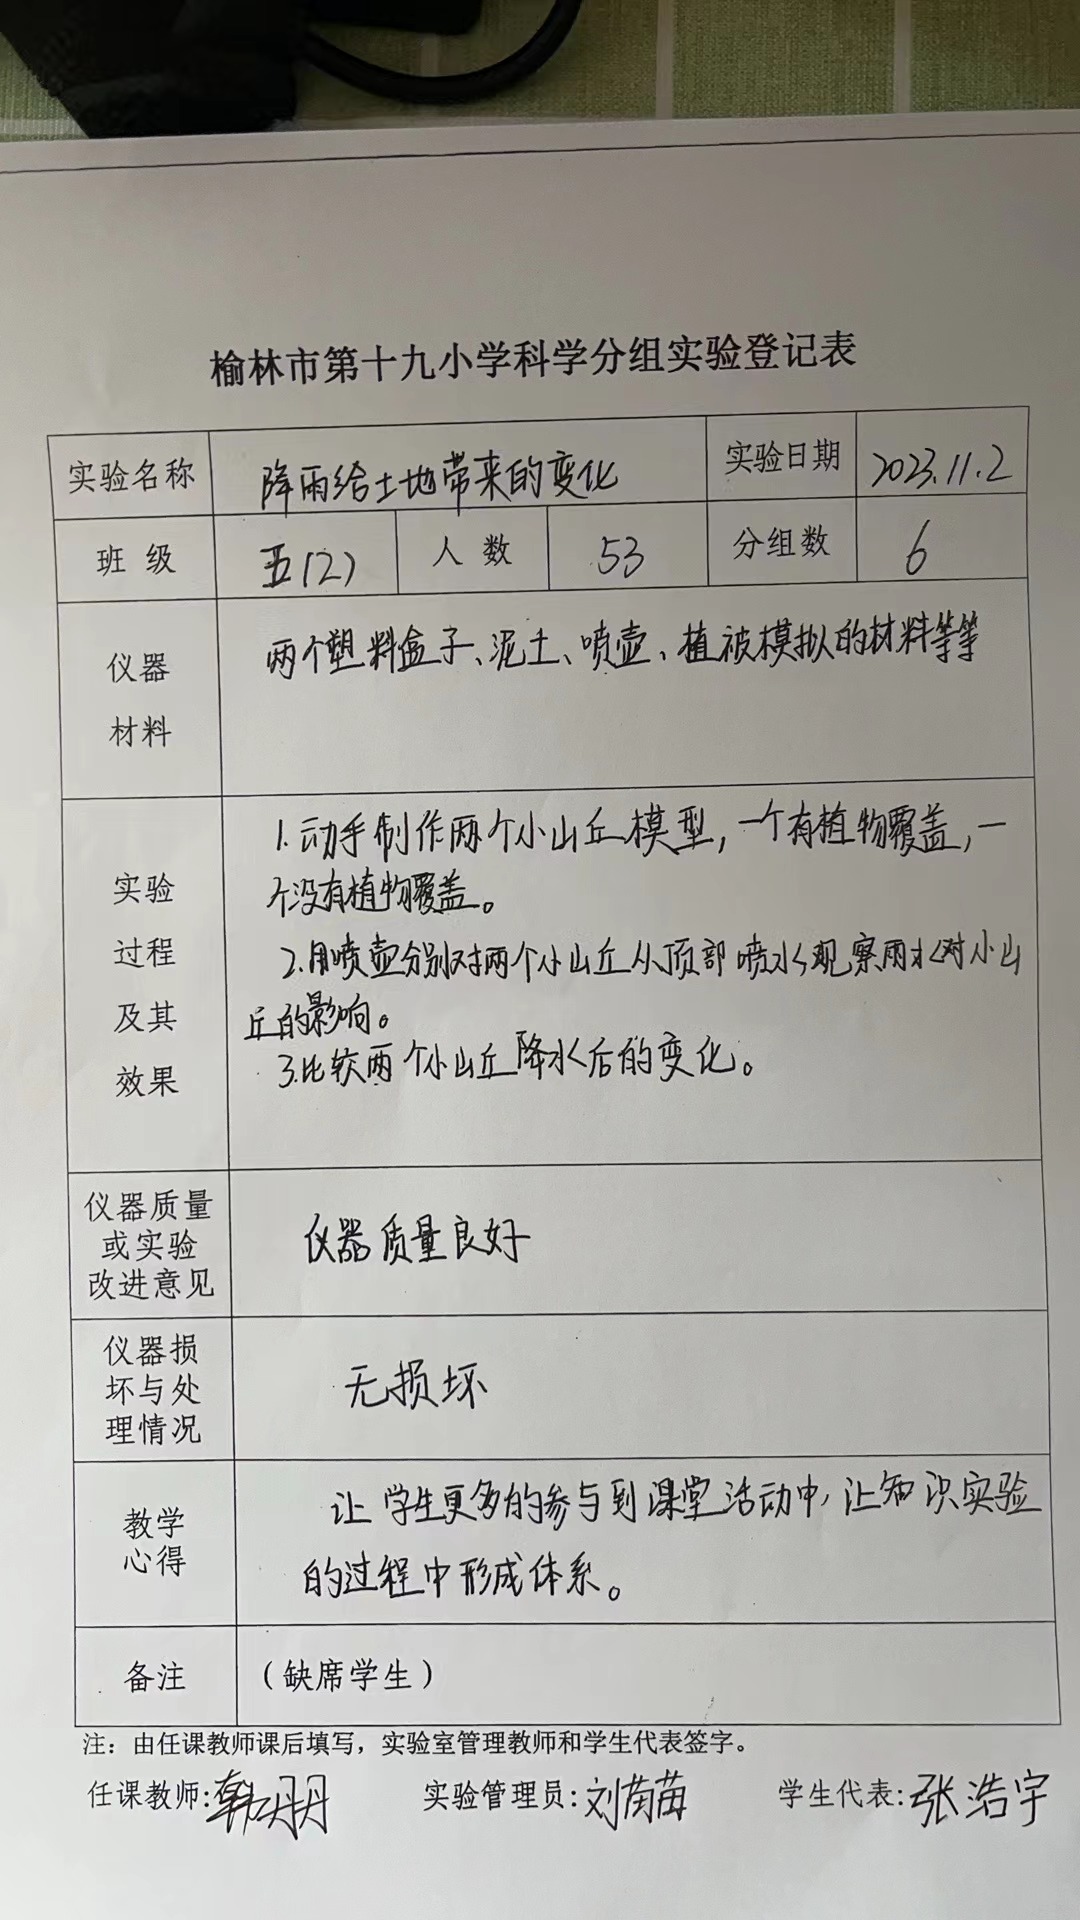 榆林市第十九小学科学分组实验登记表
实验名称 降雨给土地带来的变化 实验日期 2023.11.2
班级 五(2) 人数 53 分组数 6
仪器
材料
两个塑料盒子、泥土、喷壶、植被模拟的材料等等
实验
过程
及其
效果
1.动手制作两个小山丘模型，一个有植物覆盖，一
个没有植物覆盖。
2.用喷壶分别对两个小山丘从顶部喷水观察雨水对小山
丘的影响。
3.比较两个小山丘降水后的变化。
仪器质量
或实验
改进意见
仪器质量良好
仪器损
坏与处
理情况
无损坏
教学
心得
让学生更多的参与到课堂活动中，让知识实验
的过程中形成体系。
备注 （缺席学生）
注：由任课教师课后填写，实验室管理教师和学生代表签字。
任课教师: 韩丹丹 实验管理员: 刘苗苗 学生代表: 张浩宇